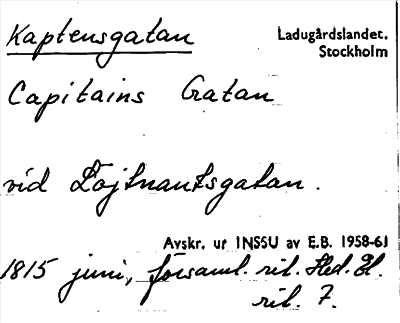 Kaptensgatan
Ladugårdslandet.
Stockholm
Capitains Gatan
vid Löjtnantsgatan.
Avskr. ur INSSU av E.B. 1958-61
1815 juni, församl. ril. Hed. El.
ril. 7.